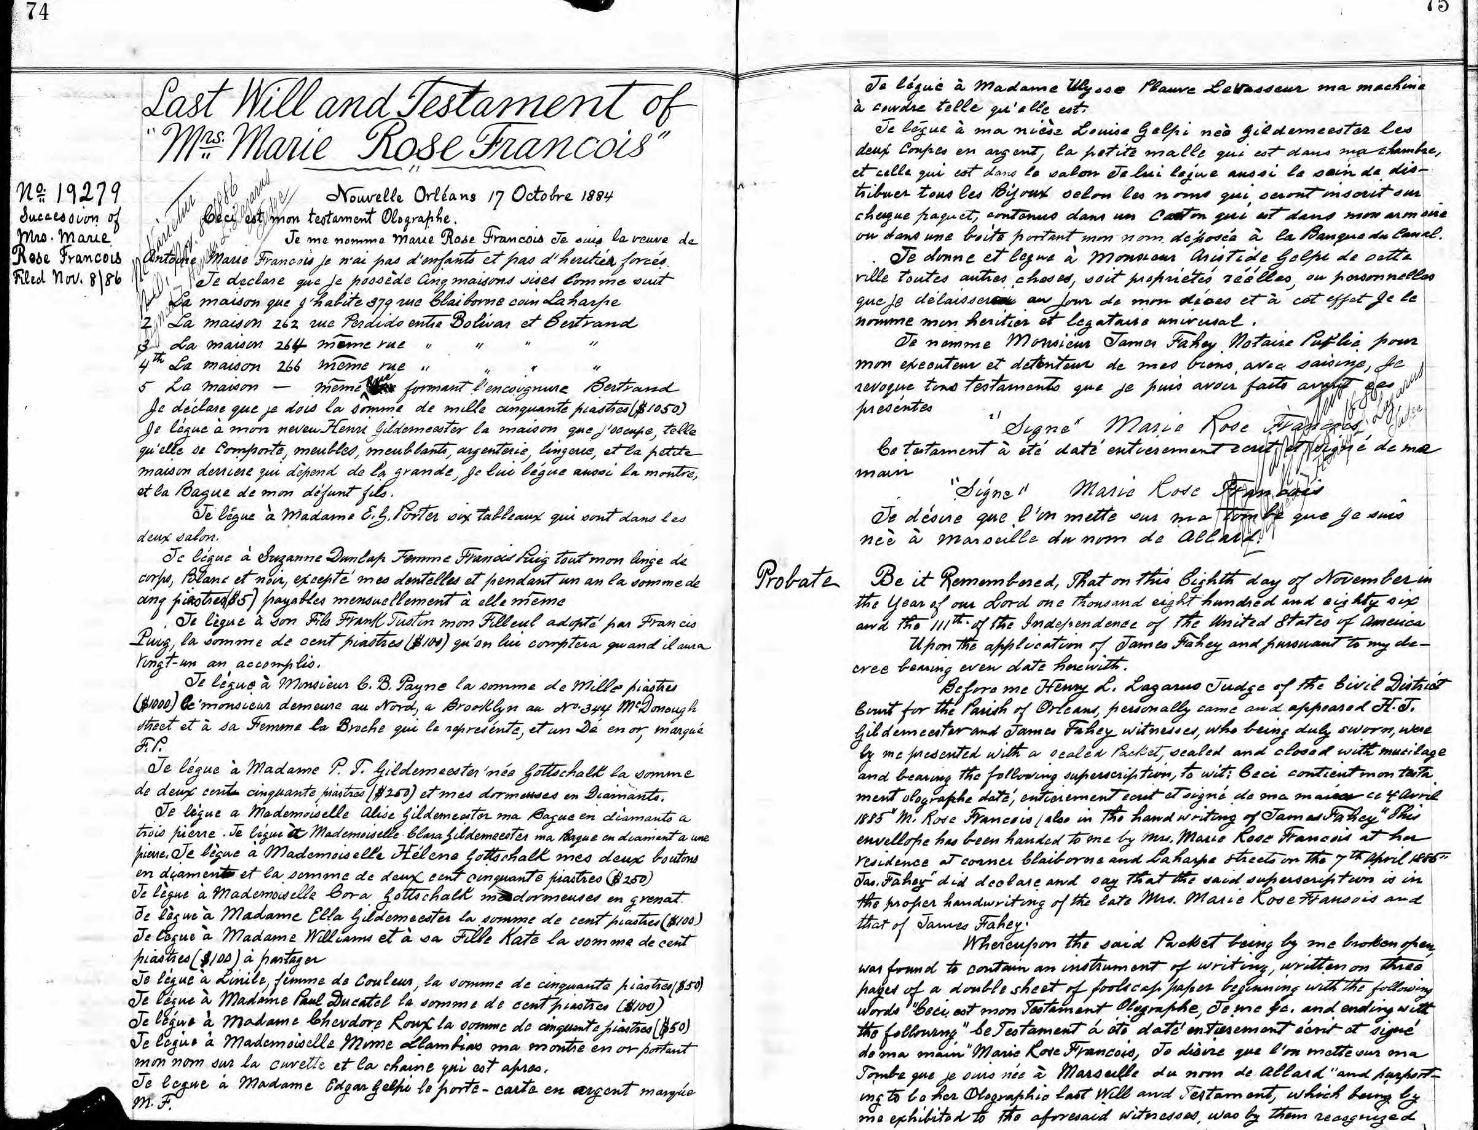 74
Last Will and Testament of
"Mrs. Marie Rose Francois"
No. 19279
Succession of
Mrs. Marie
Rose Francois
Filed Nov. 8/86
Nouvelle Orléans 17 Octobre 1884
Ceci est mon testament Olographe.
Je me nomme Marie Rose Francois Je suis la veuve de
Antoine Marie Francois je n'ai pas d'enfants et pas d'heritier forcés.
Je declare que je possède Cinq maisons sises Comme suit
La maison que j'habite 379 rue Claiborne coin Laharpe
2 La maison 262 rue Perdido entre Bolivar et Bertrand
3 La maison 264 même rue " " " "
4th La maison 266 même rue " " " "
5 La maison — même rue formant l'encoignure Bertrand
Je déclare que je dois la somme de mille cinquante piastres ($1050)
Je lègue à mon neveu Henri Gildemeester la maison que j'occupe, telle
qu'elle se Comporte, meubles, meublants, argenterie, lingerie, et la petite
maison derriere qui dépend de la grande, je lui lègue aussi la montre,
et la Bague de mon défunt fils.
Je lègue à Madame E. G. Porter six tableaux qui sont dans les
deux salon.
Je lègue à Suzanne Dunlap Femme Francis Puig tout mon linge de
corps, Blanc et noir, excepté mes dentelles et pendant un an la somme de
cinq piastres ($5) payables mensuellement à elle même
Je lègue à son Fils Frank Justin mon Filleul adopté par Francis
Puig, la somme de cent piastres ($100) qu'on lui comptera quand il aura
vingt-un an accomplis.
Je lègue à Monsieur C. B. Payne la somme de Mille piastres
($1000) Ce monsieur demeure au Nord, a Brooklyn au No 344 McDonough
street et à sa Femme la Broche qui le représente, et un Dé en or, marqué
F. P.
Je lègue à Madame P. T. Gildemeester née Gottschalk la somme
de deux cents cinquante piastres ($250) et mes dormeuses en Diamants.
Je lègue a Mademoiselle Alise Gildemeester ma Bague en diamants a
trois pierre. Je lègue à Mademoiselle Clara Gildemeester ma Bague en diamant a une
pierre. Je lègue à Mademoiselle Hélène Gottschalk mes deux boutons
en diamants et la somme de deux cent cinquante piastres ($250)
Je lègue à Mademoiselle Cora Gottschalk mes dormeuses en grenat.
Je lègue à Madame Ella Gildemeester la somme de cent piastres ($100)
Je lègue à Madame Williams et à sa Fille Kate la somme de cent
piastres ($100) à partager
Je lègue à Linile, femme de Couleur, la somme de cinquante piastres ($50)
Je lègue à Madame Paul Ducatel la somme de cent piastres ($100)
Je lègue à Madame Chevdore Roux la somme de cinquante piastres ($50)
Je lègue à Mademoiselle Mime Llambias ma montre en or portant
mon nom sur la cuvette et la chaine qui est apres.
Je legue à Madame Edgar Gelpi le porte-carte en argent marquée
M. F.
75
Je légue à Madame Ulysse Plauve Levasseur ma machine
à coudre telle qu'elle est.
Je lègue à ma nièce Louise Gelpi née Gildemeester les
deux Coupes en argent, la petite malle qui est dans ma chambre,
et celle qui est dans le salon Je lui legue aussi le soin de dis-
tribuer tous les Bijoux selon les noms qui seront inscrit sur
cheque paquet, contenus dans un Carton qui est dans mon armoire
ou dans une boite portant mon nom déposée à la Banque du Canal.
Je donne et legue à Monsieur Aristide Gelpi de cette
ville toutes autres choses, soit propriétés réélles, ou personnelles
que je délaisserai au jour de mon décès et à cet effet Je le
nomme mon heritier et legataire universal.
Je nomme Monsieur James Fahey Notaire Public pour
mon executeur et detenteur de mes biens avec saisine, Je
revoque tous testaments que je puis avoir faits avant ces
présentes
"Signé" Marie Rose Francois
Ce testament à été daté entierement ecrit et signé de ma
main
"Signe" Marie Rose Francois
Je désire que l'on mette sur ma tombe que je suis
née à Marseille du nom de Allard.
Probate
Be it Remembered, That on this Eighth day of November in
the Year of our Lord one thousand eight hundred and eighty six
and the 111th of the Independence of the United States of America
Upon the application of James Fahey and pursuant to my de-
cree bearing even date herewith.
Before me Henry L. Lazarus Judge of the Civil District
Court for the Parish of Orleans, personally came and appeared H. T.
Gildemeester and James Fahey witnesses, who being duly sworn, were
by me presented with a sealed Packet, sealed and closed with mucilage
and bearing the following superscription, to wit: Ceci contient mon testa
ment olographe daté, entierement ecrit et signé de ma main ce 4 Avril
1885 "M. Rose Francois, (also in the handwriting of James Fahey" This
envellope has been handed to me by Mrs. Marie Rose Francois at her
residence at corner Claiborne and Laharpe streets on the 7th April 1885"
Jas. Fahey" did declare and say that the said superscription is in
the proper handwriting of the late Mrs. Marie Rose Francois and
that of James Fahey.
Whereupon the said Packet being by me broken open,
was found to contain an instrument of writing, written on three
pages of a double sheet of foolscap paper beginning with the following
words "Ceci est mon Testament Olographe, Je me &c. and ending with
the following" Ce Testament à été daté entierement ecrit et signé
de ma main" Marie Rose Francois, Je désire que l'on mette sur ma
Tombe que je suis née à Marseille du nom de Allard" and purport-
ing to be her Olographic last Will and Testament, which being by
me exhibited to the aforesaid witnesses, was by them recognized